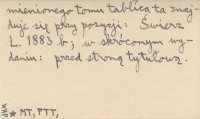 mienionego tomu tablica ta znaj-
duje się przy pozycji: Świerz
L. 1883 b; w skróconym wy-
daniu: przed stroną tytułową.
* MT, PTT,